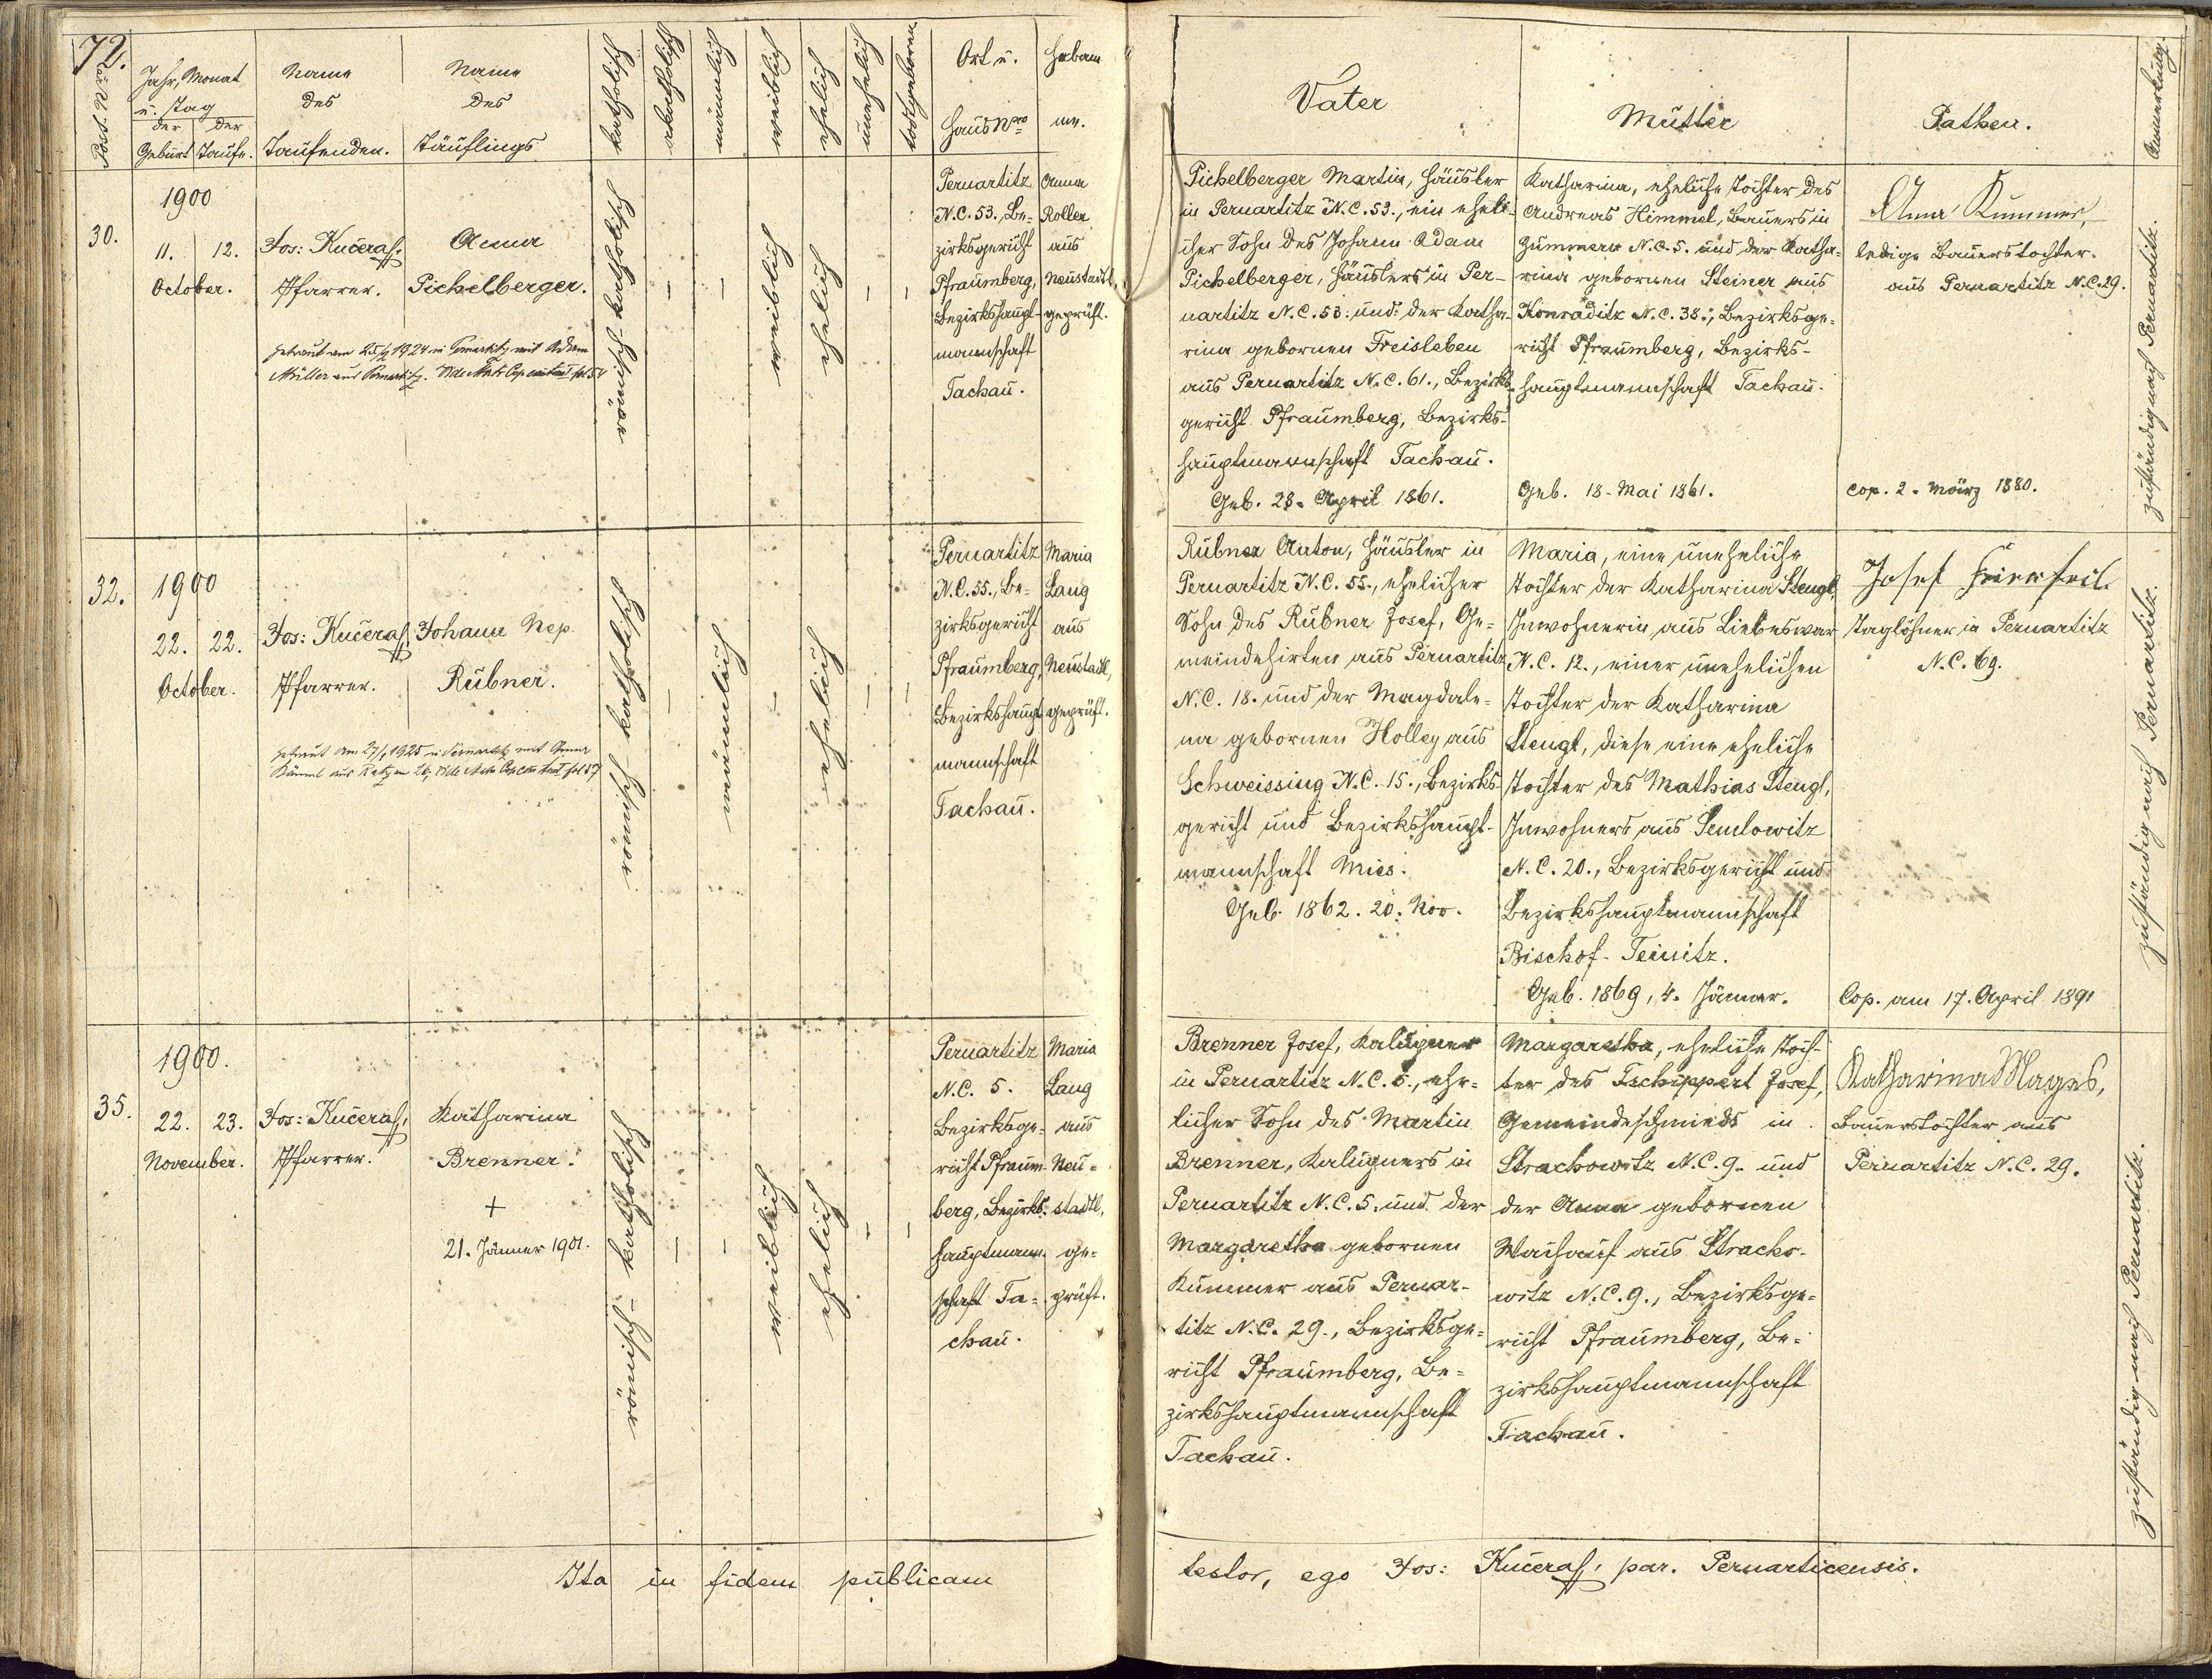 72.
Post. Nro
Jahr, Monat
u. Tag
der Geburt
der Taufe.
Name
des
Taufenden.
Name
des
Täuflings
katholisch
akatholisch
männlich
weiblich
ehelich
unehelich
todtgeboren
Ort u.
Haus Nro
Hebam
me.
Vater
Mutter
Pathen.
Anmerkung.
30.
1900
11. 12.
October.
Jos: Kučeras,
Pfarrer.
Anna
Pichelberger.
getraut am 25/ 1924 in Pernartitz mit Adam
Müller aus Pernartitz. Vide Matr Cop fol 54
römisch-katholisch
–
–
weiblich
ehelich
–
–
Pernartitz
N.C. 53., Be=
zirksgericht
Pfraumberg,
Bezirkshaupt-
mannschaft
Tachau.
Anna
Roller
aus
Neustadtl,
geprüft.
Pichelberger Martin, Häusler
in Pernartitz N.C. 53., ein eheli-
cher Sohn des Johann Adam
Pichelberger, Häuslers in Per-
nartitz N.C. 53. und der Katha-
rina gebornen Freisleben
aus Pernartitz N.C. 61., Bezirks-
gericht Pfraumberg, Bezirks-
hauptmannschaft Tachau.
Geb. 23. April 1861.
Katharina, eheliche Tochter des
Andreas Himmel, Bauers in
Zummern N.C. 5. und der Katha-
rina gebornen Steiner aus
Konraditz N.C. 38., Bezirksge=
richt Pfraumberg, Bezirks-
hauptmannschaft Tachau.
Geb. 18. Mai 1861.
Anna Kummer,
ledige Bauerstochter.
aus Pernartitz N.C. 29.
Cop. 2. März 1880.
zuständig nach Pernartitz.
32.
1900
22. 22.
October.
Jos: Kučeras,
Pfarrer.
Johann Nep.
Rübner.
getraut am 27/ 1925 in Pernartitz mit Anna
aus 26, Vide Matr Cop fol 57
römisch-katholisch
–
männlich
–
ehelich
–
–
Pernartitz
N.C. 55., Be=
zirksgericht
Pfraumberg,
Bezirkshaupt
mannschaft
Tachau.
Maria
Lang
aus
Neustadtl,
geprüft.
Rübner Anton, Häusler in
Pernartitz N.C. 55., ehelicher
Sohn des Rübner Josef, Ge=
meindehirten aus Pernartitz
N.C. 18. und der Magdale=
na gebornen Holley aus
Schweissing N.C. 15., Bezirks-
gericht und Bezirkshaupt-
mannschaft Mies.
Geb. 1862. 20. Nov.
Maria, eine uneheliche
Tochter der Katharina Stengl,
Inwohnerin aus Liebeswar
N.C. 12., einer unehelichen
Tochter der Katharina
Stengl, diese eine eheliche
Tochter des Mathias Stengl,
Inwohners aus Semlowitz
N.C. 20., Bezirksgericht und
Bezirkshauptmannschaft
Bischof-Teinitz.
Geb. 1869, 4. Jänner.
Josef
Taglöhner in Pernartitz
N.C. 69.
Cop. am 17. April 1891
zuständig nach Pernartitz.
35.
1900.
22. 23.
November.
Jos: Kučeras,
Pfarrer.
Katharina
Brenner.
+
21. Jänner 1901.
römisch-katholisch
–
–
weiblich
ehelich
–
–
Pernartitz
N.C. 5.
Bezirksge=
richt Pfraum-
berg, Bezirks-
hauptmann-
schaft Ta=
chau.
Maria
Lang
aus
Neu=
stadtl,
ge=
prüft.
Brenner Josef, Kalupner
in Pernartitz N.C. 5., ehe=
licher Sohn des Martin
Brenner, Kalupners in
Pernartitz N.C. 5. und der
Margaretha gebornen
Kummer aus Pernar-
titz N.C. 29., Bezirksge=
richt Pfraumberg, Be=
zirkshauptmannschaft
Tachau.
Margaretha, eheliche Toch-
ter des Tschippert Josef,
Gemeindeschmieds in
Strachowitz N.C. 9. und
der Anna gebornen
aus Stracho-
witz N.C. 9., Bezirksge=
richt Pfraumberg, Be=
zirkshauptmannschaft
Tachau.
Katharina Mages,
Bauerstochter aus
Pernartitz N.C. 29.
zuständig nach Pernartitz.
Ita in fidem publicam testor, ego Jos: Kučeras, par. Pernarticensis.